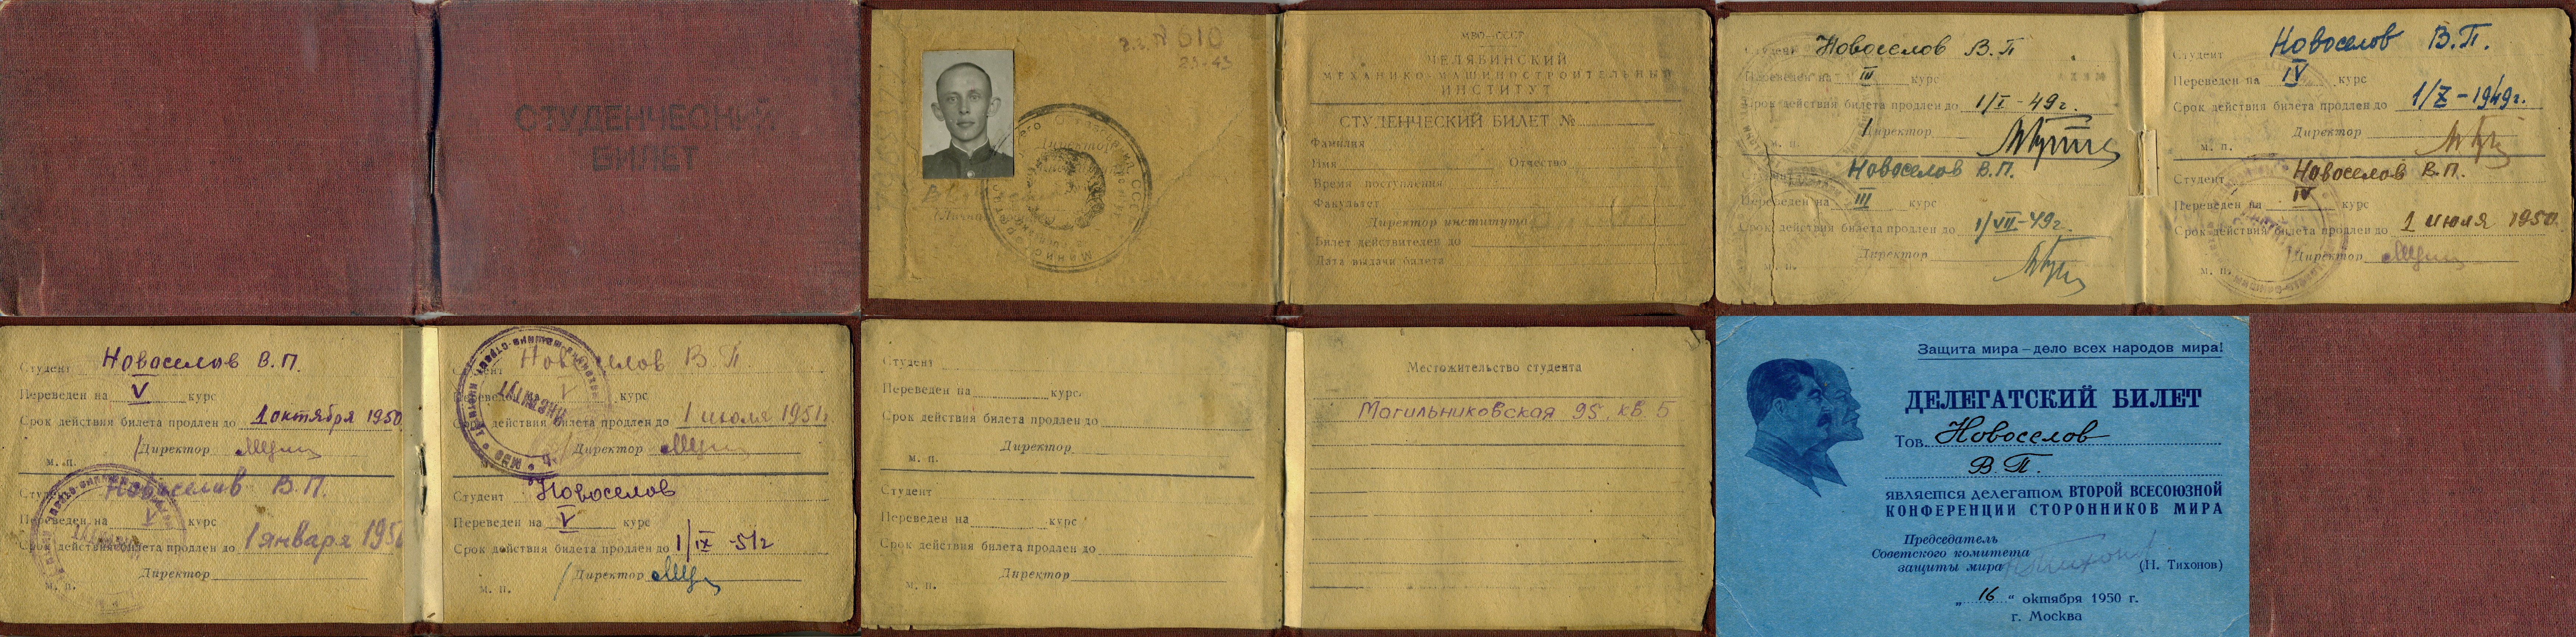 СТУДЕНЧЕСКИЙ
БИЛЕТ
№ 610
23-43
МВО-СССР
ЧЕЛЯБИНСКИЙ
МЕХАНИКО-МАШИНОСТРОИТЕЛЬНЫЙ
ИНСТИТУТ
СТУДЕНЧЕСКИЙ БИЛЕТ №
Фамилия
Имя Отчество
Время поступления
Факультет
Директор института
Билет действителен до
Дата выдачи билета
Студент Новоселов В.П
Переведен на III курс
Срок действия билета продлен до 1/I-49г.
Директор
м. п.
Студент Новоселов В.П.
Переведен на III курс
Срок действия билета продлен до 1/VII-49г.
Директор
м. п.
Студент Новоселов В.П.
Переведен на IV курс
Срок действия билета продлен до 1/Z-1949г.
Директор
м. п.
Студент Новоселов В.П.
Переведен на IV курс
Срок действия билета продлен до 1 июля 1950.
Директор
м. п.
Студент Новоселов В.П.
Переведен на V курс
Срок действия билета продлен до 1 октября 1950.
Директор
м. п.
Студент Новоселов В.П.
Переведен на V курс
Срок действия билета продлен до 1 января 195
Директор
м. п.
Студент Новоселов В П
Переведен на V курс
Срок действия билета продлен до 1 июля 1951г
Директор
Студент Новоселов
Переведен на V курс
Срок действия билета продлен до 1/IX-51г
Директор
м. п.
Студент
Переведен на курс
Срок действия билета продлен до
Директор
м. п.
Студент
Переведен на курс
Срок действия билета продлен до
Директор
м. п.
Местожительство студента
Могильниковская 95 кв. 5
Защита мира – дело всех народов мира!
ДЕЛЕГАТСКИЙ БИЛЕТ
Тов. Новоселов
В.П.
является делегатом ВТОРОЙ ВСЕСОЮЗНОЙ
КОНФЕРЕНЦИИ СТОРОННИКОВ МИРА
Председатель
Советского комитета
защиты мира (Н. Тихонов)
„ 16 “ октября 1950 г.
г. Москва